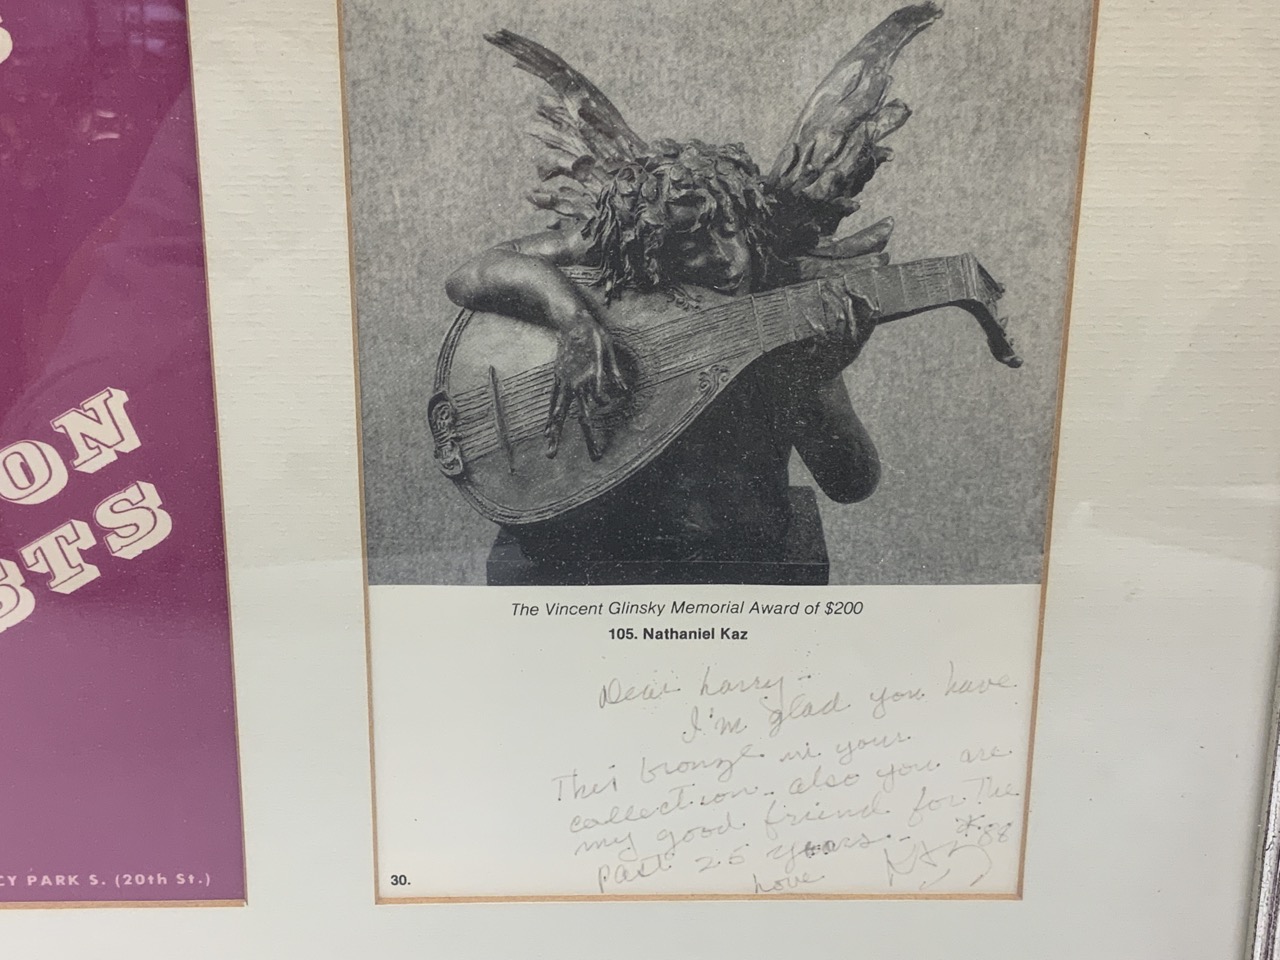 S
ON
STS
CY PARK S. (20th St.)
The Vincent Glinsky Memorial Award of $200
105. Nathaniel Kaz
Dear Larry-
I'm glad you have
This bronze in your
collection. also you are
my good friend for The
past 25 years.-
Love Kaz 88
30.